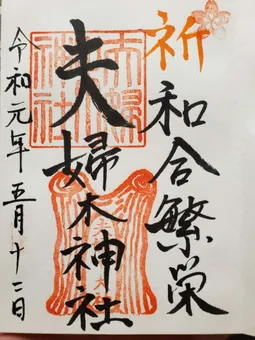 祈
和合繁栄
夫婦木神社
夫婦木神社
令和元年五月十二日